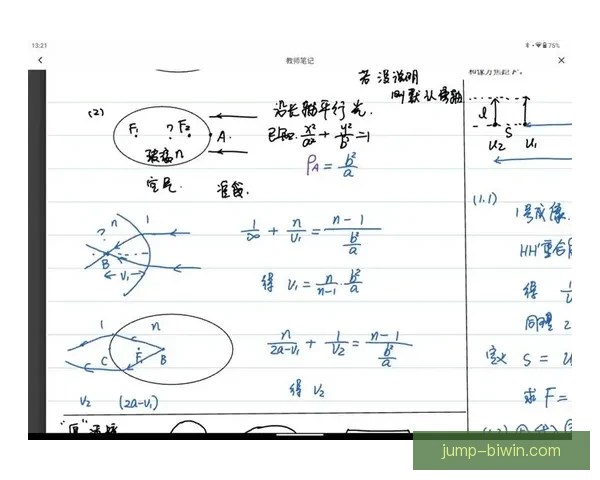 13:21
75%
教师笔记
若没说明
则默认傍轴
(2)
F₁ ? F₂ A
玻璃 n
沿长轴平行光
已知: x²/a² + y²/b² = 1
ρA = b²/a
空气
n 1
?
B
v₁
1/∞ + n/v₁ = (n-1)/(b²/a)
得 v₁ = n/(n-1) · b²/a
1 n
C F₁ B
v₂ (2a-v₁)
n/(2a-v₁) + 1/v₂ = (n-1)/(b²/a)
得 v₂
"厚"透镜
l
S
u₂ u₁
(1.1)
1号成像
HH'重合
得
同理 2
定义 S = u
求 F =
jump-biwin.com